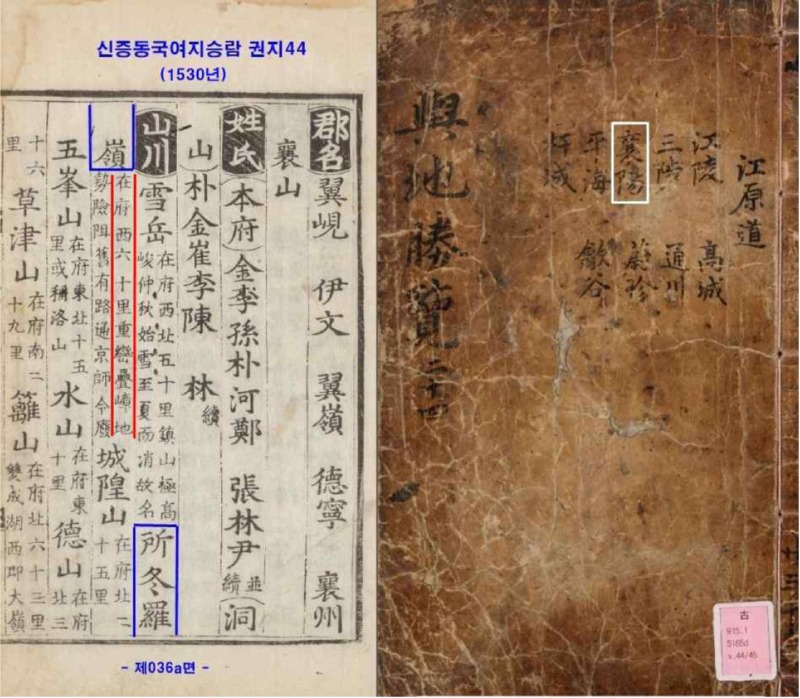 신증동국여지승람 권지44
(1530년)
郡名 翼峴 伊文 翼嶺 德寧 襄州
襄山
姓氏 本府 金李孫朴河鄭 張林尹 並續 洞
山 朴金崔李陳 林 續
山川 雪岳 在府西北五十里鎭山極高峻仲秋始雪至夏而消故名 所冬羅
嶺 在府西六十里重巒疊嶂地勢險阻舊有路通京師今廢 城隍山 在府北二十五里
五峯山 在府東北十五里或稱洛山 水山 在府東十里 德山 在府北三
十六里 草津山 在府南二十九里 籬山 在府北六十三里雙成湖西即大嶺
- 제036a면 -
江原道
江陵 高城
三陟 通川
襄陽 蔚珍
平海 歙谷
杆城
輿地勝覽 二十四
古
915.1
Si65d
v.44/45